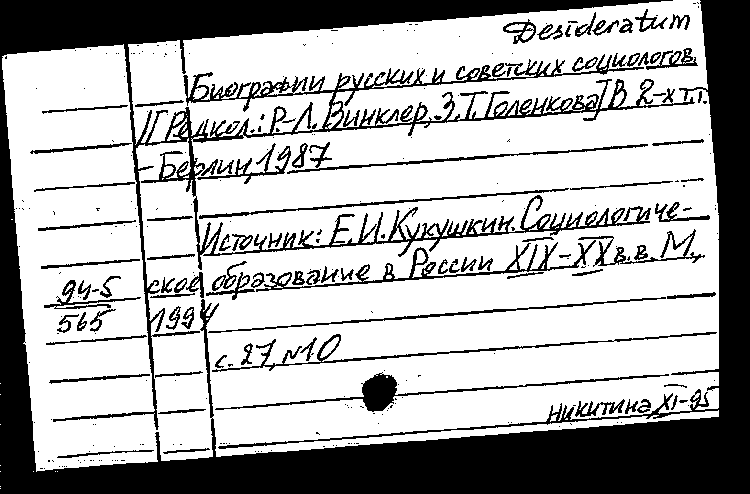 Desideratum
Биографии русских и советских социологов.
//[Редкол.: Р.-Л. Винклер, З.Т. Голенкова] В 2-х т.т.
– Берлин, 1987
Источник: Е.И. Кукушкин. Социологиче-
94-5 ское образование в России XIX–XX в.в. М.,
565 1994
с. 27, №10
Никитина, XI-95